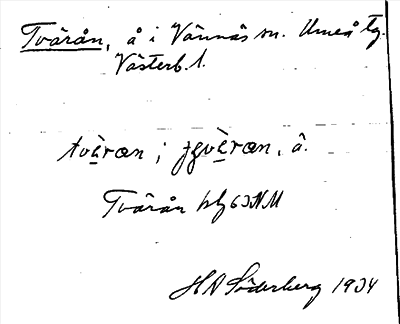 Tvärån, å i Vännäs sn. Umeå tg.
Västerb. l.
tvὲ̱ræn ; jgvὲ̱ræn, å.
Tvärån
HA Söderberg 1934